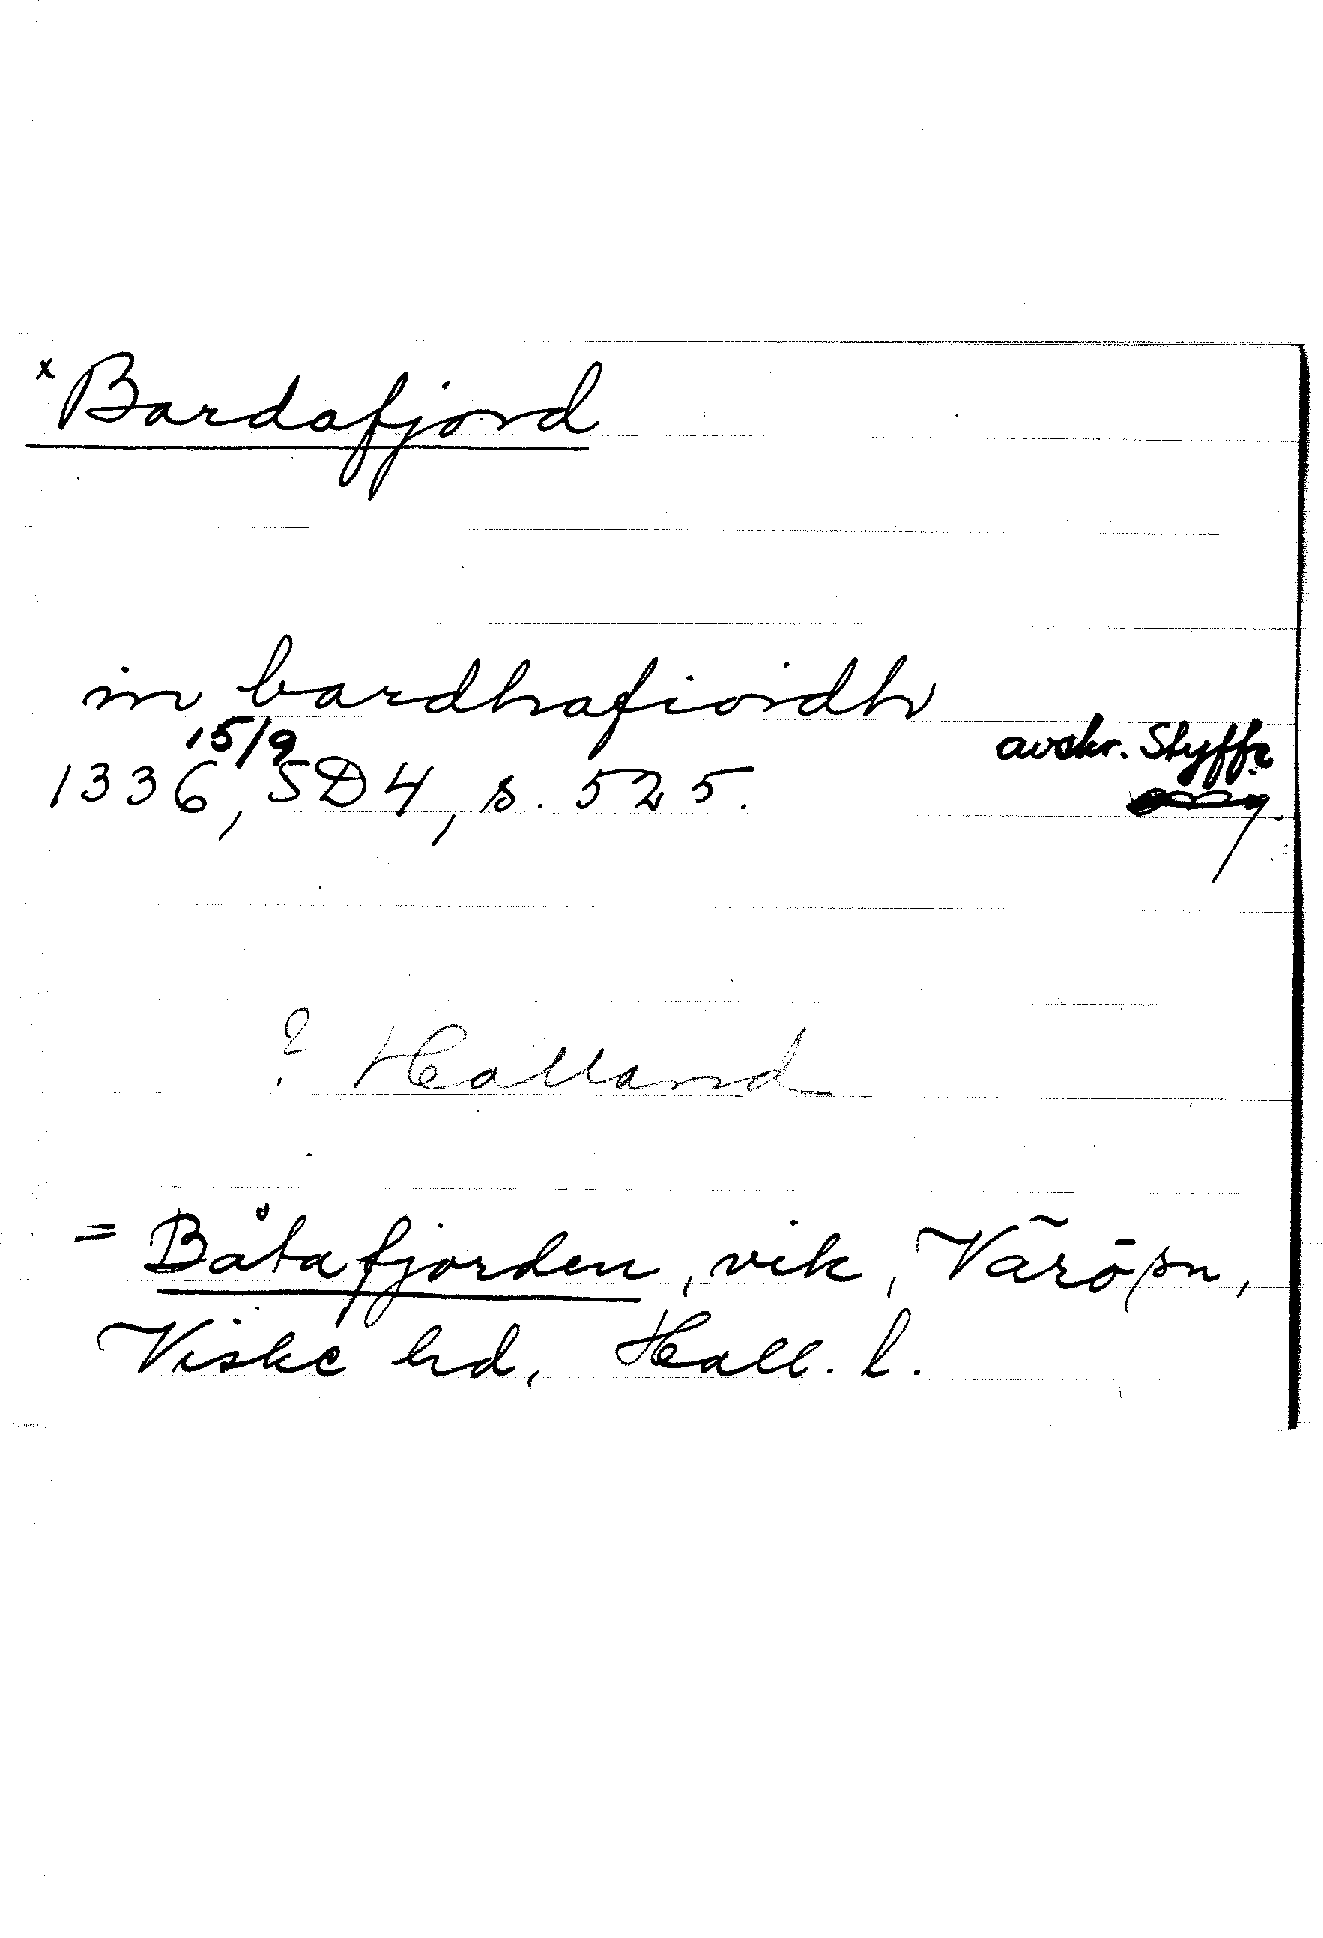 x Bardafjord
in bardhafiordh
15/9
1336, SD4, s. 525.
avskr. Styffe
? Halland
= Båtafjorden, vik, Värö sn,
Viske hd, Hall. l.